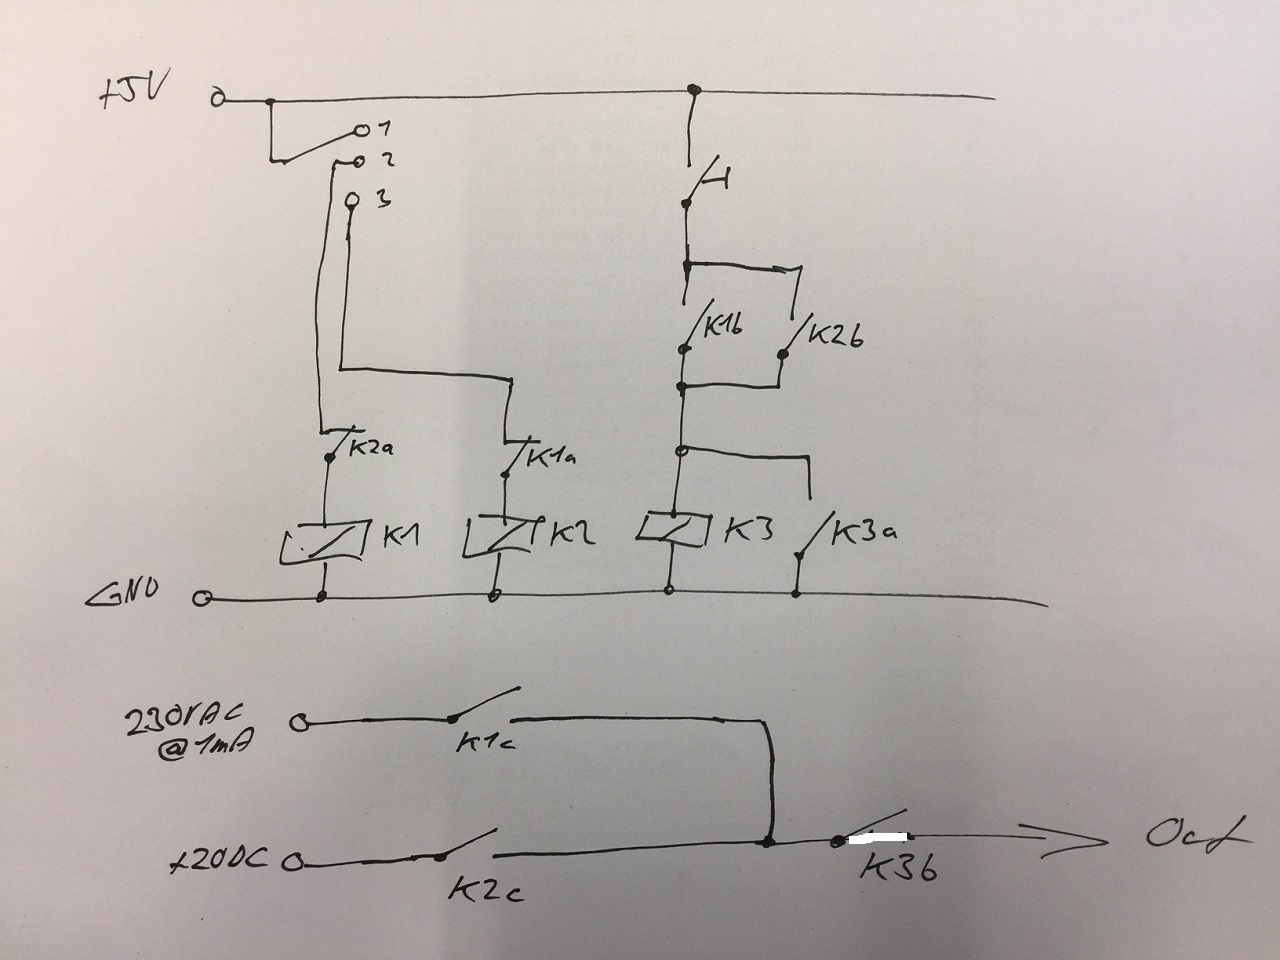 +5V
1
2
3
K1b
K2b
K2a
K1a
K1
K2
K3
K3a
GND
230VAC
@1mA
K1c
+20DC
K2c
K3b
Out